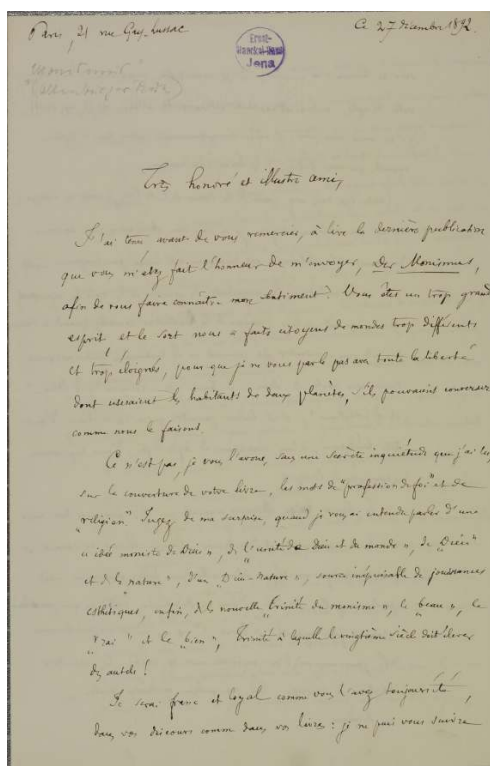 Paris, 21 rue Gay-Lussac
Ce 27 décembre 1892.
Ernst-
Haeckel-Haus
Jena
Très honoré et illustre ami,
J'ai tenu avant de vous remercier, à lire la dernière publication
que vous m'avez fait l'honneur de m'envoyer, Der Monismus,
afin de vous faire connaître mon sentiment. Vous êtes un trop grand
esprit et le sort nous a faits citoyens de mondes trop différents
et trop éloignés, pour que je ne vous parle pas avec toute la liberté
dont useraient les habitants de deux planètes, s'ils pouvaient converser
comme nous le faisons.
Ce n'est pas, je vous l'avoue, sans une secrète inquiétude que j'ai lu,
sur la couverture de votre livre, les mots de "profession de foi" et de
"religion". Jugez de ma surprise, quand je vous ai entendu parler d'une
« idée moniste de Dieu », de l'"unité de dieu et du monde », de "Dieu"
et de la nature", d'un "Dieu-Nature », source inépuisable de jouissances
esthétiques, enfin, de la nouvelle "trinité du monisme », le "beau », le
"vrai" et le "bien", trinité à laquelle le vingtième siècle doit élever
des autels !
Je serai franc et loyal comme vous l'avez toujours été,
dans vos discours comme dans vos livres : je ne puis vous suivre